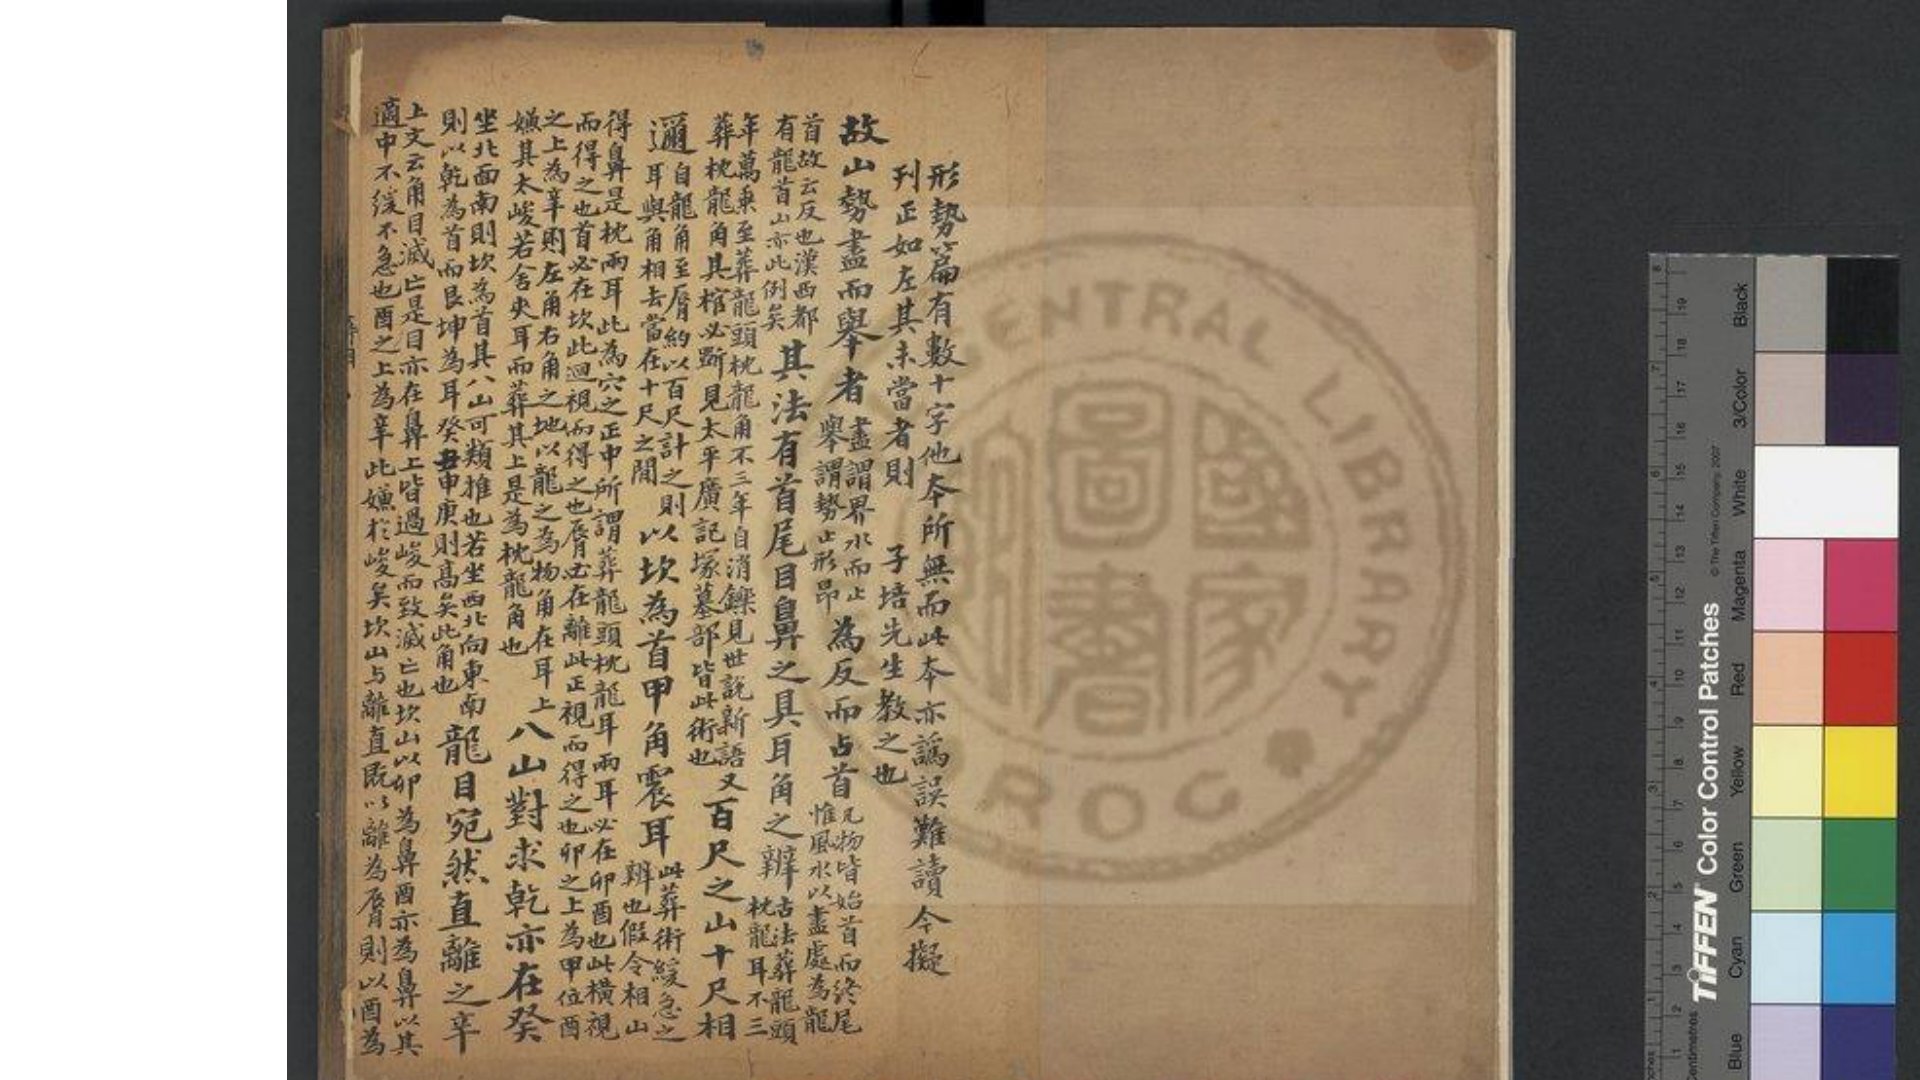 形勢篇有數十字他本所無而此本亦譌誤難讀今擬
刊正如左其未當者則 子培先生教之也
故山勢盡而舉者盡謂界水而止舉謂勢止形昂為反而占首凡物皆始首而終尾惟風水以盡處為龍
首故云反也漢西都有龍首山亦此例矣其法有首尾目鼻之具耳角之辨古法葬龍頭枕龍耳不三
年萬乘至葬龍頭枕龍角不三年自消鑠見世說新語又葬枕龍角其棺必斲見太平廣記塚墓部皆此術也百尺之山十尺相
邇自龍角至脣約以百尺計之則耳與角相去當在十尺之間以坎為首甲角震耳此葬術緩急之辨也假令相山
得鼻是枕兩耳此為穴之正中所謂葬龍頭枕龍耳兩耳必在卯酉也此橫視而得之也首必在坎此迴視而得之也脣必在離此正視而得之也卯之上為甲位酉
之上為辛則左角右角之地以龍之為物角在耳上嫌其太峻若舍夾耳而葬其上是為枕龍角也八山對求乾亦在癸
坐北面南則坎為首其八山可類推也若坐西北向東南則以乾為首而艮坤為耳癸丑申庚則高矣此角也龍目宛然直離之辛
上文云角目滅亡是目亦在鼻上皆過峻而致滅亡也坎山以卯為鼻酉亦為鼻以其
適中不緩不急也酉之上為辛此嫌於峻矣坎山与離直既以離為脣則以酉為
CENTRAL LIBRARY
ROC
國家圖書館
TIFFEN Color Control Patches
© The Tiffen Company, 2007
Centimetres
Blue
Cyan
Green
Yellow
Red
Magenta
White
3/Color
Black